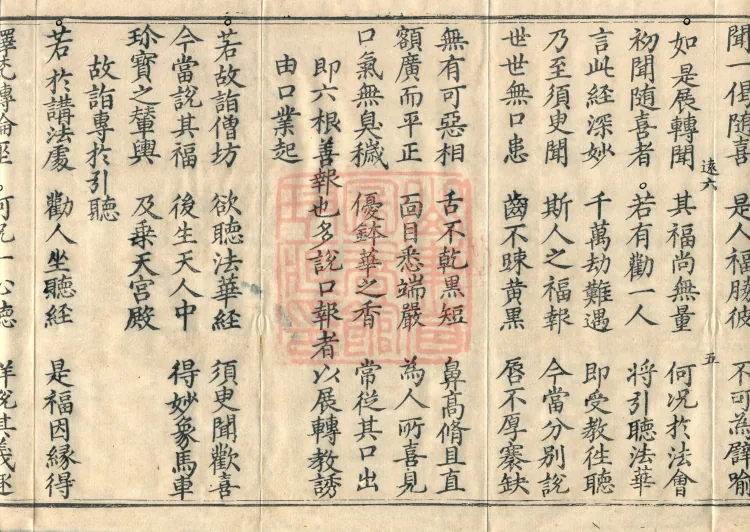 聞一偈隨喜 是人福勝彼 不可為譬喻
如是展轉聞 其福尚無量 何况於法會
遠六 五
初聞隨喜者 若有勸一人 将引聽法華
言此經深妙 千萬劫難遇 即受教徃聽
乃至須臾聞 斯人之福報 今當分别說
世世無口患 齒不踈黄黑 唇不厚褰缺
無有可惡相 舌不乾黒短 鼻高脩且直
額廣而平正 面目悉端嚴 為人所喜見
口氣無臭穢 優鉢華之香 常從其口出
即六根善報也多說口報者以展轉教誘
由口業起
若故詣僧坊 欲聽法華經 須臾聞歡喜
今當說其福 後生天人中 得妙象馬車
珎寶之輦輿 及乗天宮殿
故詣專於引聽
若於講法處 勸人坐聽經 是福因緣得
釋梵轉輪座 何况一心聽 詳說其義趣